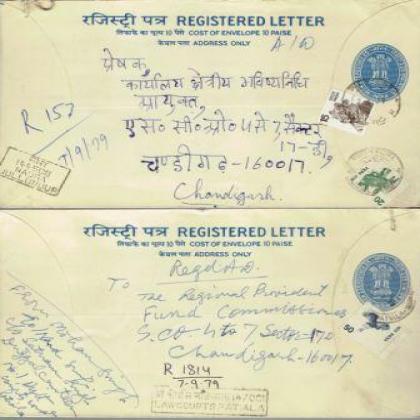 रजिस्ट्री पत्र REGISTERED LETTER
लिफाफे का मूल्य 10 पैसे COST OF ENVELOPE 10 PAISE
केवल पता ADDRESS ONLY
A/D
प्रेषक,
कार्यालय क्षेत्रीय भविष्यनिधि
आयुक्त,
एस० सी० ओ० 4 से 7, सैक्टर
17-डी,
चण्डीगढ़-160017.
Chandigarh.
R 157
7/9/79
JULLUNDUR
रजिस्ट्री पत्र REGISTERED LETTER
लिफाफे का मूल्य 10 पैसे COST OF ENVELOPE 10 PAISE
केवल पता ADDRESS ONLY
Regd A.D.
To
The Regional Provident
Fund Commissioner
S.CO. 4 to 7 Sector 17D
Chandigarh-160017.
R 1814
7-9-79
LAWCOURTS PATIALA
From Mohan Singh